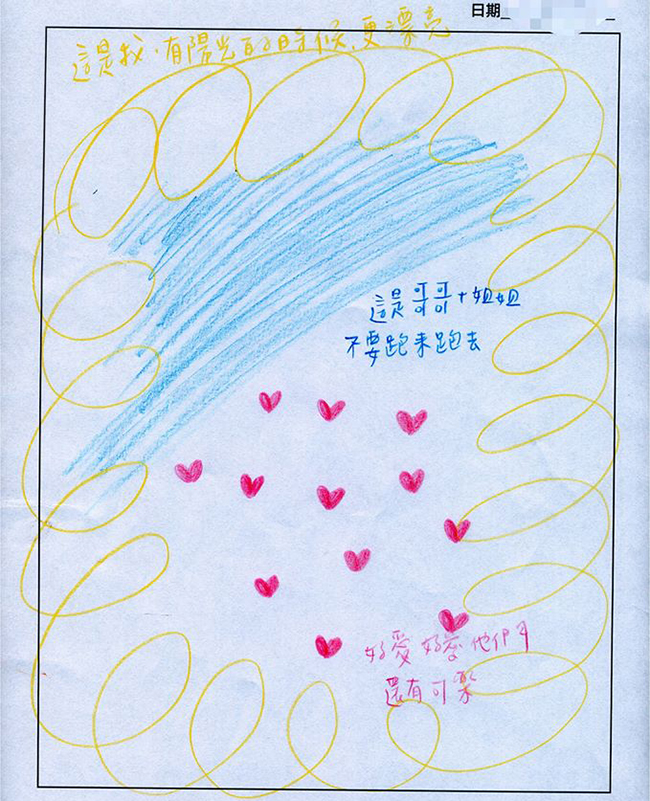 日期
這是我.有陽光的時候.更漂亮
這是哥哥+姐姐
不要跑來跑去
好愛好愛他們
還有可樂